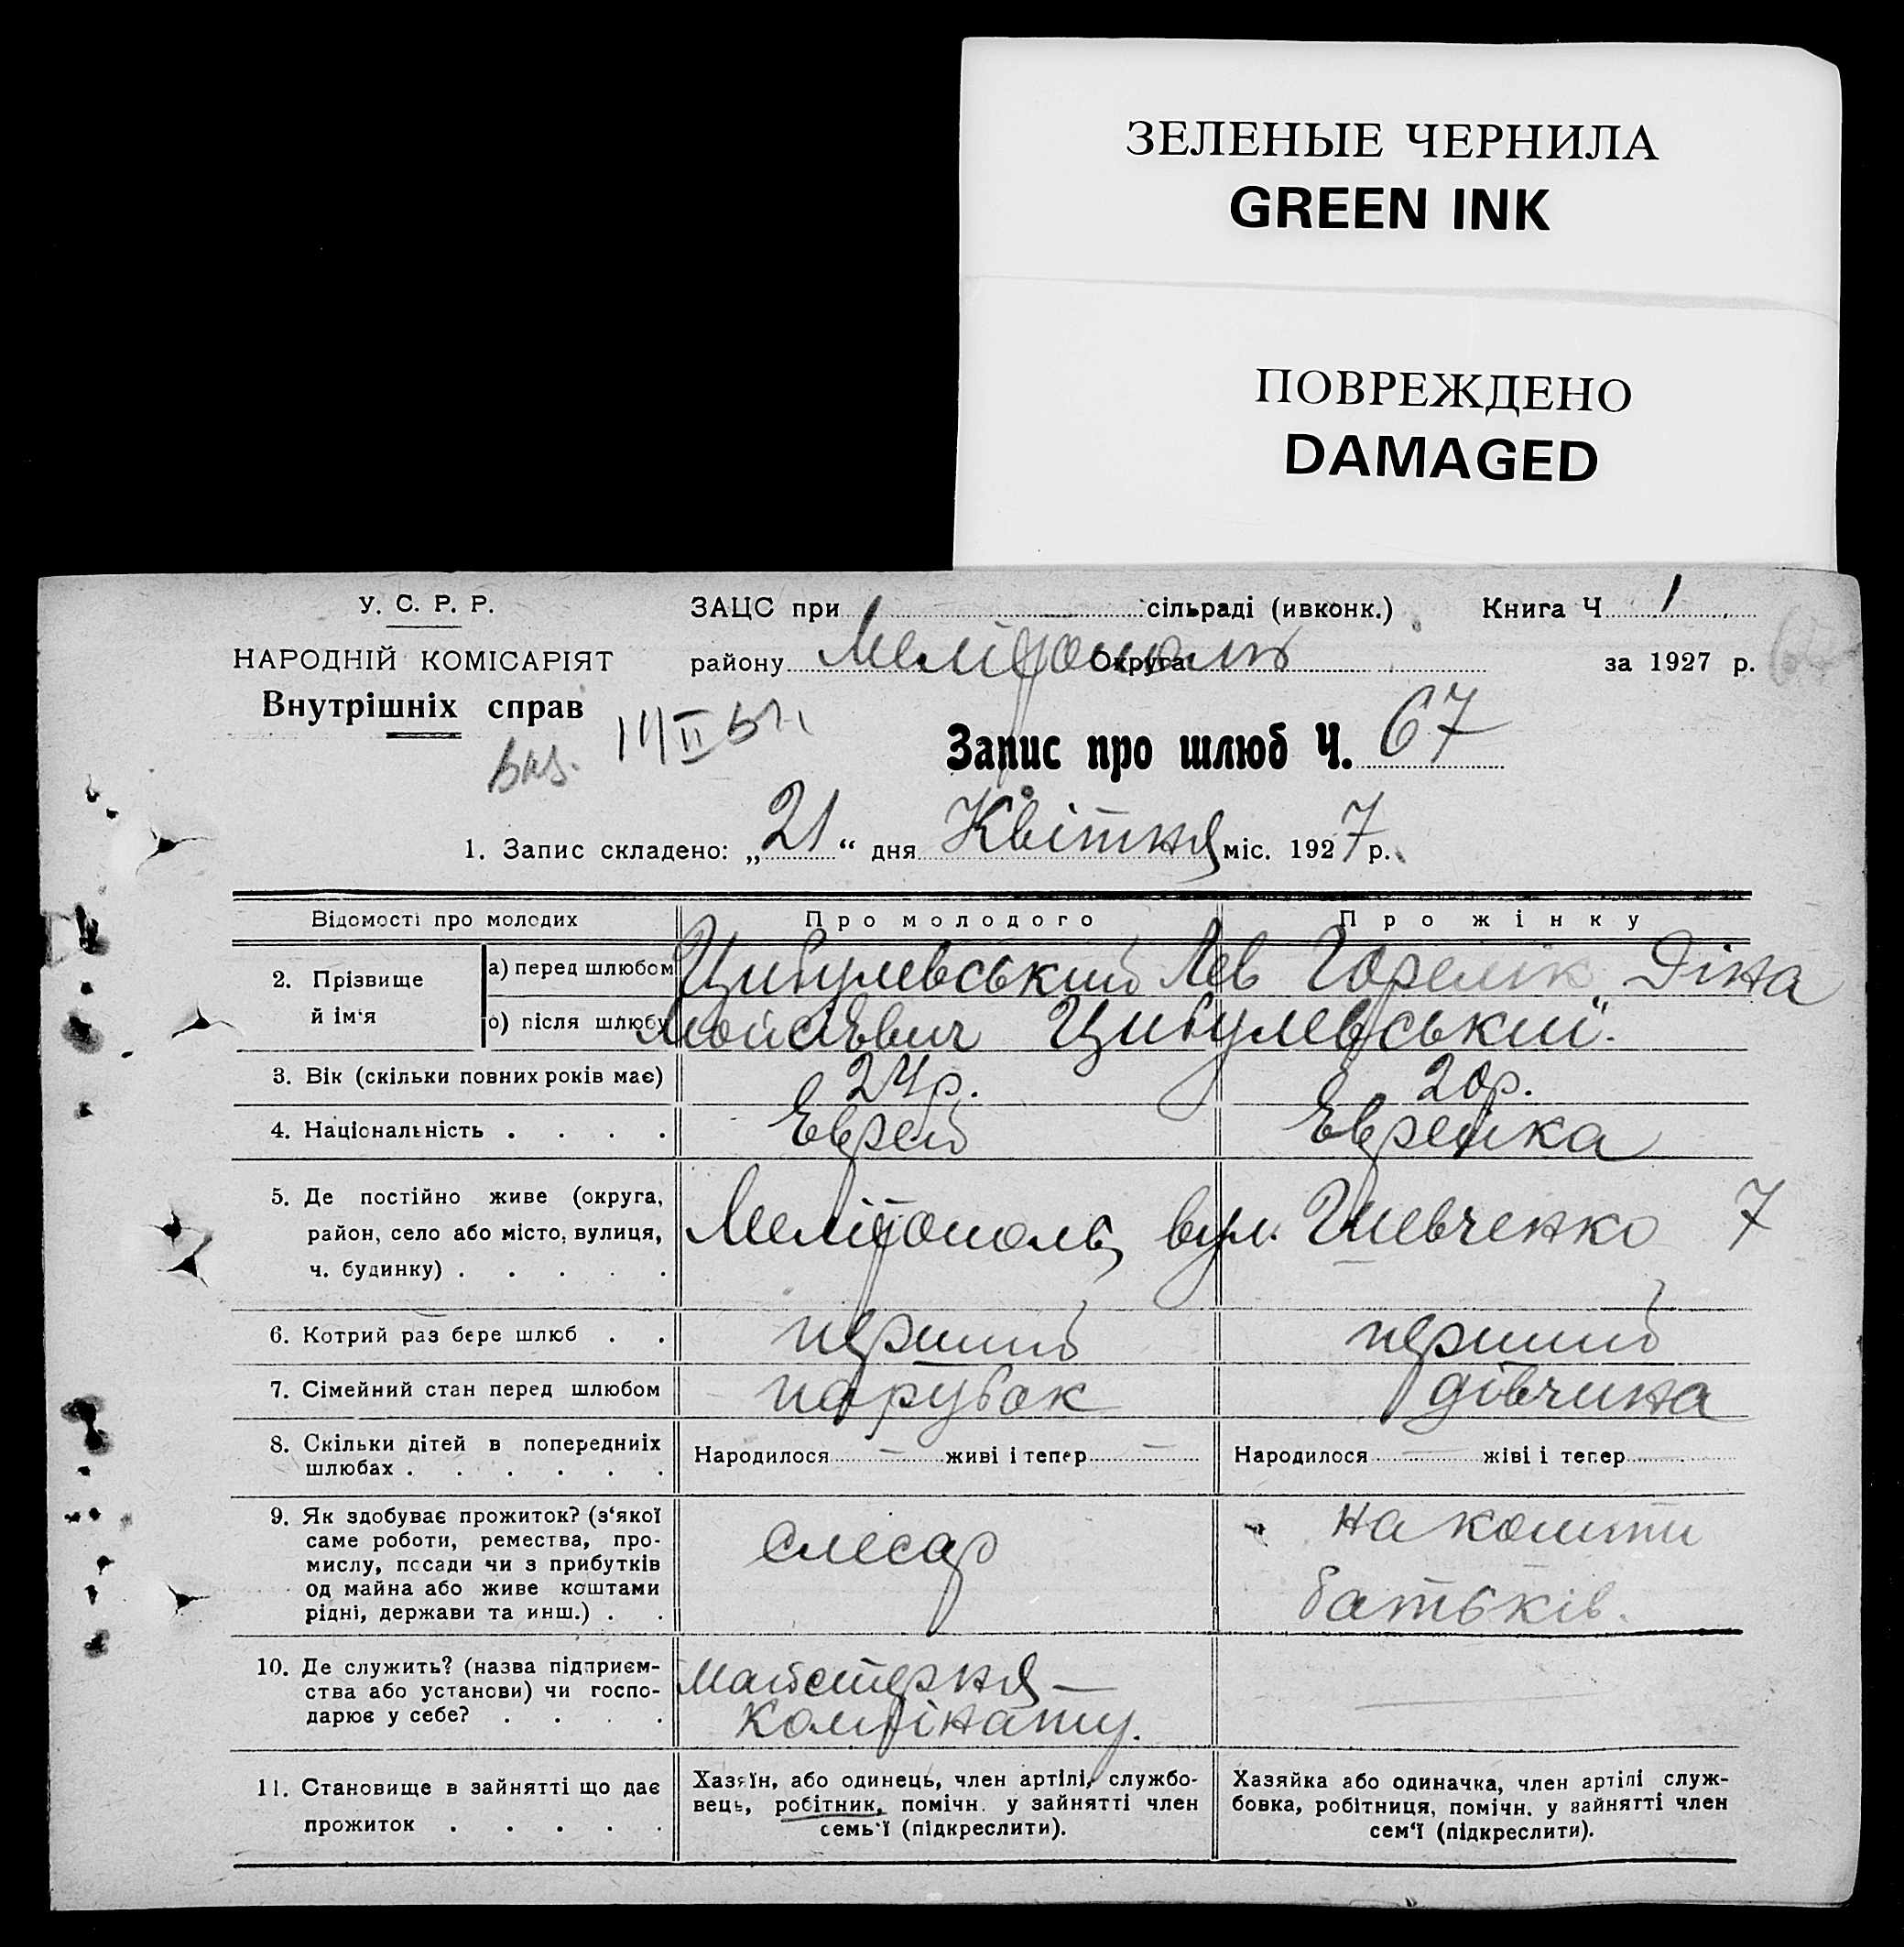 ЗЕЛЕНЫЕ ЧЕРНИЛА
GREEN INK
ПОВРЕЖДЕНО
DAMAGED
У. С. Р. Р.
НАРОДНІЙ КОМІСАРІЯТ
Внутрішніх справ
ЗАЦС при сільраді (ивконк.) Книга Ч 1
району Мелітополь Округа за 1927 р.
Запис про шлюб Ч. 67
1. Запис складено: „21“ дня Квітня міс. 1927 р.
Відомості про молодих Про молодого Про жінку
2. Прізвище й ім‘я а) перед шлюбом Цибулевський Лев Горелік Діна
о) після шлюбу Мойсієвич Цибулевський".
3. Вік (скільки повних років має) 24р. 20р.
4. Національність . . . . Еврей Еврейка
5. Де постійно живе (округа,
район, село або місто, вулиця,
ч. будинку) . . . . . Мелітополь, вул. Шевченко 7
6. Котрий раз бере шлюб . . перший перший
7. Сімейний стан перед шлюбом парубок дівчина
8. Скільки дітей в попередниіх
шлюбах . . . . . . Народилося — живі і тепер — Народилося — жіві і тепер —
9. Як здобуває прожиток? (з‘якої
саме роботи, ремества, про-
мислу, посади чи з прибутків
од майна або живе коштами
рідні, держави та инш.) . .
слесар
на кошти
батьків.
10. Де служить? (назва підприєм-
ства або установи) чи госпо-
дарює у себе? . . . .
майстерня —
комбінату.
11. Становище в зайнятті що дає
прожиток . . . . .
Хазяїн, або одинець, член артілі, службо-
вець, робітник, помічн. у зайнятті член
семь'ї (підкреслити).
Хазяйка або одиначка, член артілі служ-
бовка, робітниця, помічн. у зайнятті член
сем‘ї (підкреслити).